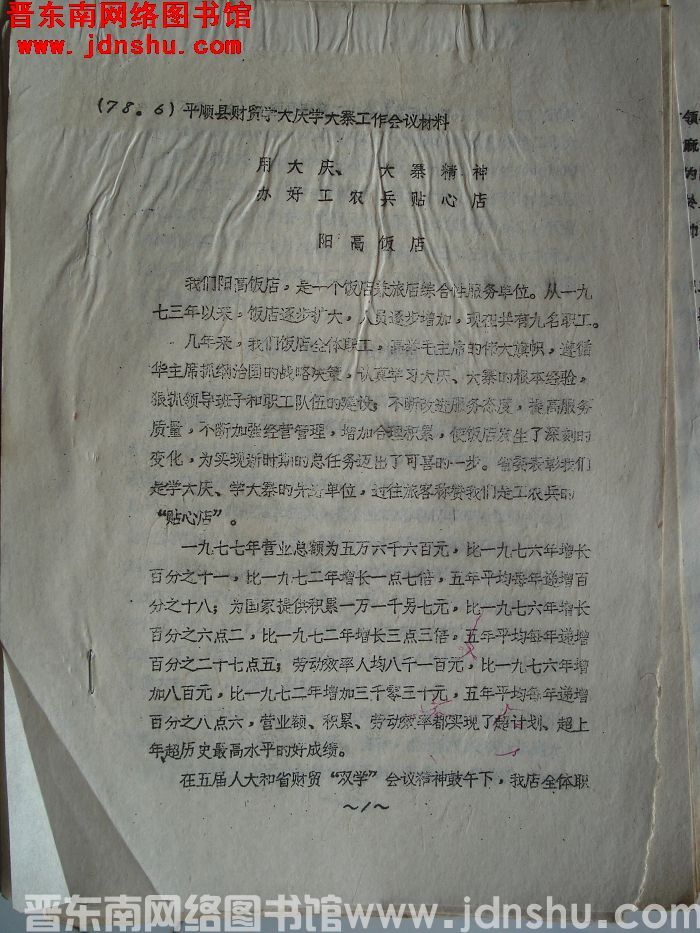 晋东南网络图书馆
www.jdnshu.com
(78.6)平顺县财贸学大庆学大寨工作会议材料
用大庆、大寨精神
办好工农兵贴心店
阳高饭店
我们阳高饭店，是一个饭店兼旅店综合性服务单位。从一九
七三年以来，饭店逐步扩大，人员逐步增加，现在共有九名职工。
几年来，我们饭店全体职工，高举毛主席的伟大旗帜，遵循
华主席抓纲治国的战略决策，认真学习大庆、大寨的根本经验，
狠抓领导班子和职工队伍的建设；不断改进服务态度，提高服务
质量，不断加强经营管理，增加合理积累，使饭店发生了深刻的
变化，为实现新时期的总任务迈出了可喜的一步。省委表彰我们
是学大庆、学大寨的先进单位，过往旅客称赞我们是工农兵的
“贴心店”。
一九七七年营业总额为五万六千六百元，比一九七六年增长
百分之十一，比一九七二年增长一点七倍，五年平均每年递增百
分之十八；为国家提供积累一万一千另七元，比一九七六年增长
百分之六点二，比一九七二年增长三点三倍，五年平均每年递增
百分之二十七点五；劳动效率人均八千一百元，比一九七六年增
加八百元，比一九七二年增加三千零三十元，五年平均每年递增
百分之八点六，营业额、积累、劳动效率都实现了超计划、超上
年超历史最高水平的好成绩。
在五届人大和省财贸“双学”会议精神鼓午下，我店全体职
～1～
晋东南网络图书馆 www.jdnshu.com